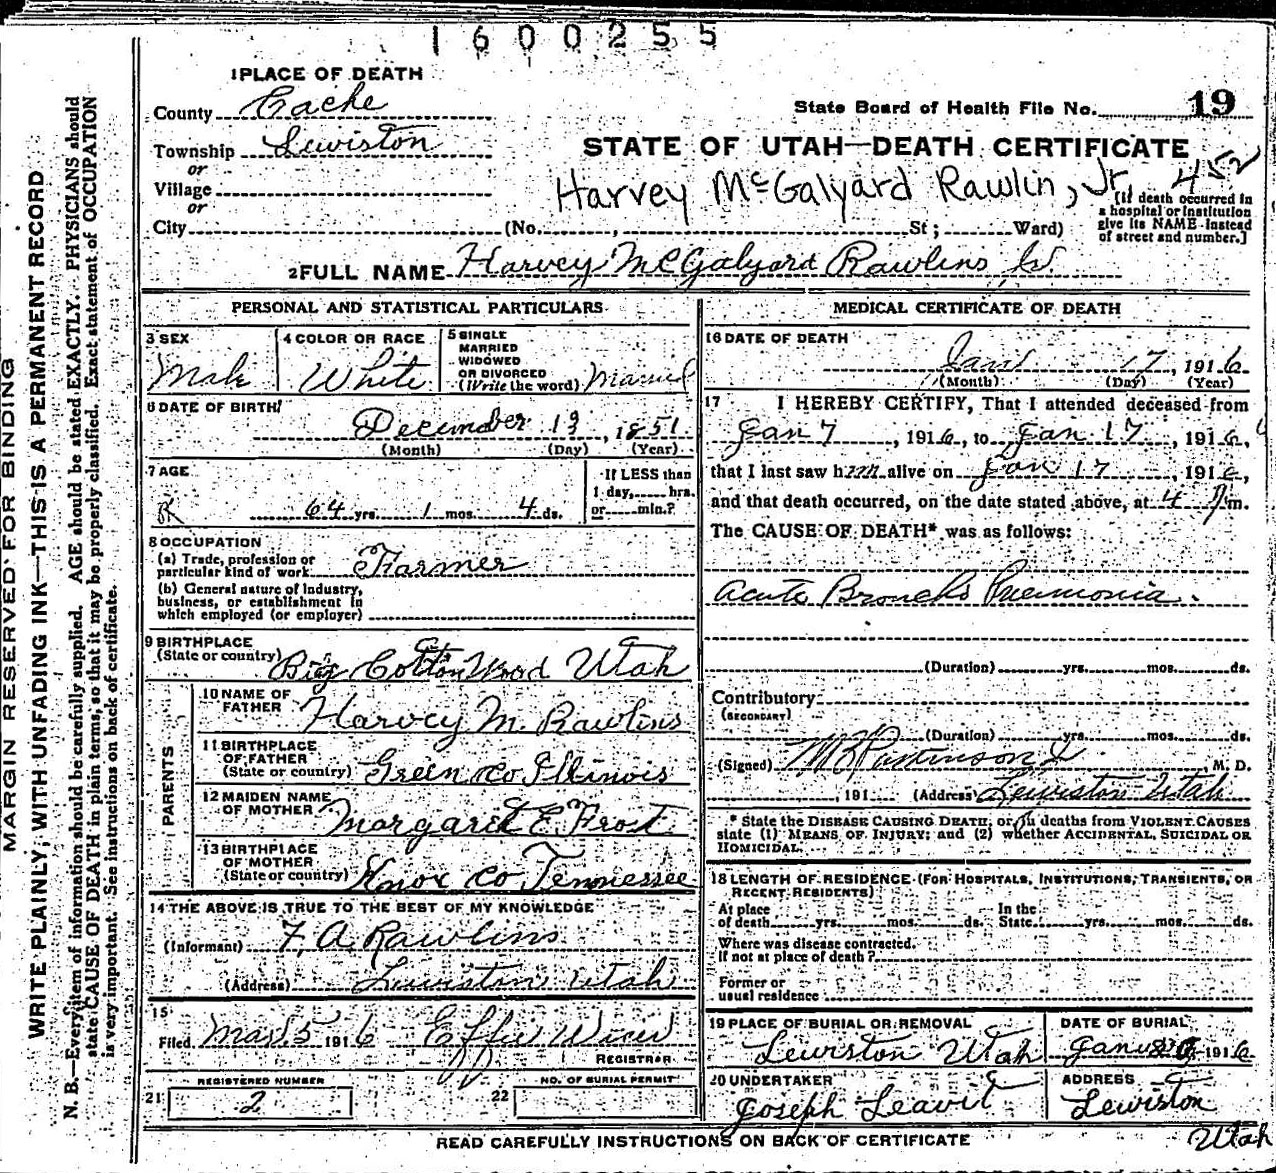 1600255
1 PLACE OF DEATH
County Cache
State Board of Health File No. 19
Township Lewiston
STATE OF UTAH—DEATH CERTIFICATE
or
Village
Harvey McGalyard Rawlin, Jr. 452
or
City (No. , St ; Ward)
[If death occurred in
a hospital or institution
give its NAME instead
of street and number.]
2 FULL NAME Harvey McGalyard Rawlins
PERSONAL AND STATISTICAL PARTICULARS
3 SEX
Male
4 COLOR OR RACE
White
5 SINGLE
MARRIED
WIDOWED
OR DIVORCED
(Write the word) Married
6 DATE OF BIRTH
December 13, 1851
(Month) (Day) (Year)
7 AGE
64 yrs. 1 mos. 4 ds.
If LESS than
1 day, hrs.
or min.?
8 OCCUPATION
(a) Trade, profession or
particular kind of work Farmer
(b) General nature of Industry,
business, or establishment in
which employed (or employer)
9 BIRTHPLACE
(State or country) Big Cottonwood Utah
PARENTS
10 NAME OF
FATHER Harvey M. Rawlins
11 BIRTHPLACE
OF FATHER
(State or country) Green Co Illinois
12 MAIDEN NAME
OF MOTHER Margaret E. Frost
13 BIRTHPLACE
OF MOTHER
(State or country) Knox Co Tennessee
14 THE ABOVE IS TRUE TO THE BEST OF MY KNOWLEDGE
(Informant) F. A. Rawlins
(Address) Lewiston Utah
15
Filed Mar. 5 1916 Effie
REGISTRAR
REGISTERED NUMBER
21 2
NO. OF BURIAL PERMIT
22
MEDICAL CERTIFICATE OF DEATH
16 DATE OF DEATH
Jan 17, 1916
(Month) (Day) (Year)
17 I HEREBY CERTIFY, That I attended deceased from
Jan 7, 1916, to Jan 17, 1916,
that I last saw him alive on Jan 17, 1916,
and that death occurred, on the date stated above, at 4 m.
The CAUSE OF DEATH* was as follows:
Acute Broncho Pneumonia.
(Duration) yrs. mos. ds.
Contributory
(SECONDARY)
(Duration) yrs. mos. ds.
(Signed) , M. D.
, 191 (Address) Lewiston Utah
* State the DISEASE CAUSING DEATH, or, in deaths from VIOLENT CAUSES
state (1) MEANS OF INJURY; and (2) whether ACCIDENTAL, SUICIDAL OR
HOMICIDAL.
18 LENGTH OF RESIDENCE (FOR HOSPITALS, INSTITUTIONS, TRANSIENTS, OR
RECENT RESIDENTS)
At place
of death yrs. mos. ds.
In the
State yrs. mos. ds.
Where was disease contracted.
If not at place of death?
Former or
usual residence
19 PLACE OF BURIAL OR REMOVAL
Lewiston Utah
DATE OF BURIAL
1916
20 UNDERTAKER
Joseph Leavit
ADDRESS
Lewiston
Utah
READ CAREFULLY INSTRUCTIONS ON BACK OF CERTIFICATE
MARGIN RESERVED FOR BINDING
WRITE PLAINLY, WITH UNFADING INK—THIS IS A PERMANENT RECORD
N. B.—Every item of information should be carefully supplied. AGE should be stated EXACTLY. PHYSICIANS should
state CAUSE OF DEATH in plain terms, so that it may be properly classified. Exact statement of OCCUPATION
is very important. See instructions on back of certificate.